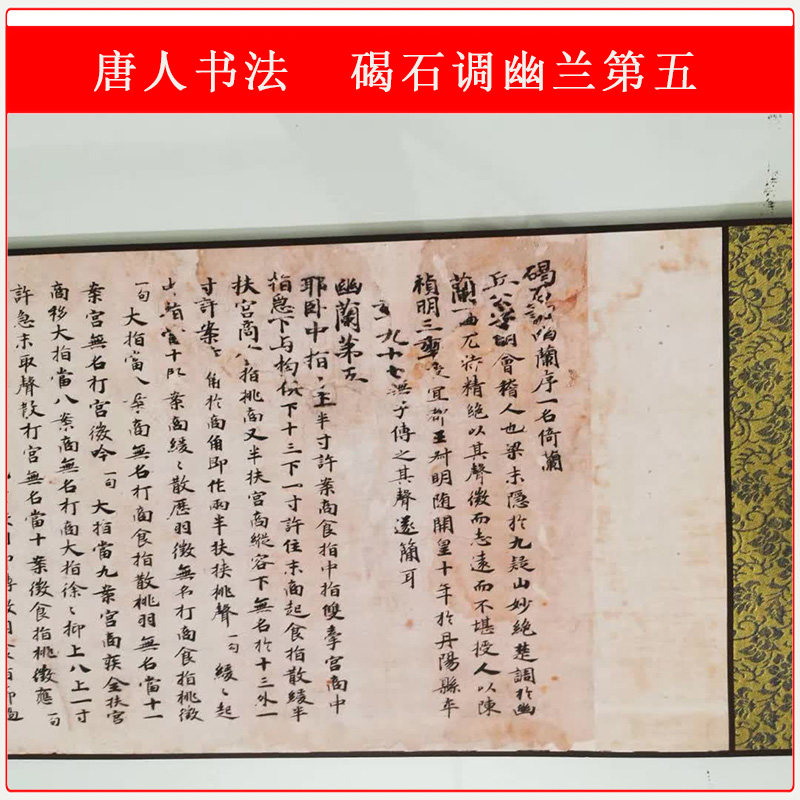 唐人书法 碣石调幽兰第五
碣石調幽蘭序一名倚蘭
丘公字明會稽人也梁末隱於九疑山妙絶楚調於幽
蘭一曲尤特精絶以其聲微而志遠而不堪授人以陳
禎明三年授宜都王叔明随開皇十年於丹陽縣卒
年九十七無子傳之其聲遂簡耳
幽蘭第五
耶卧中指〻半寸許案商食指中指雙牽宮商中
指急下与拘俱下十三下一寸許住末商起食指散緩半
扶宮商食指挑商又半扶宮商縱容下無名於十三外一
寸許案商角於商角即作兩半扶挾挑聲一句緩〻起
案商緩〻散歷羽徵無名打商食指挑徵
一句大指當八案商無名打商食指散挑羽無名當十一
案宮無名打宮徵吟一句大指當九案宮商疾全扶宮
商移大指當八案商無名打商大指徐〻抑上八上一寸
許急末取聲散打宮無名當十案徵食指挑徵應一句